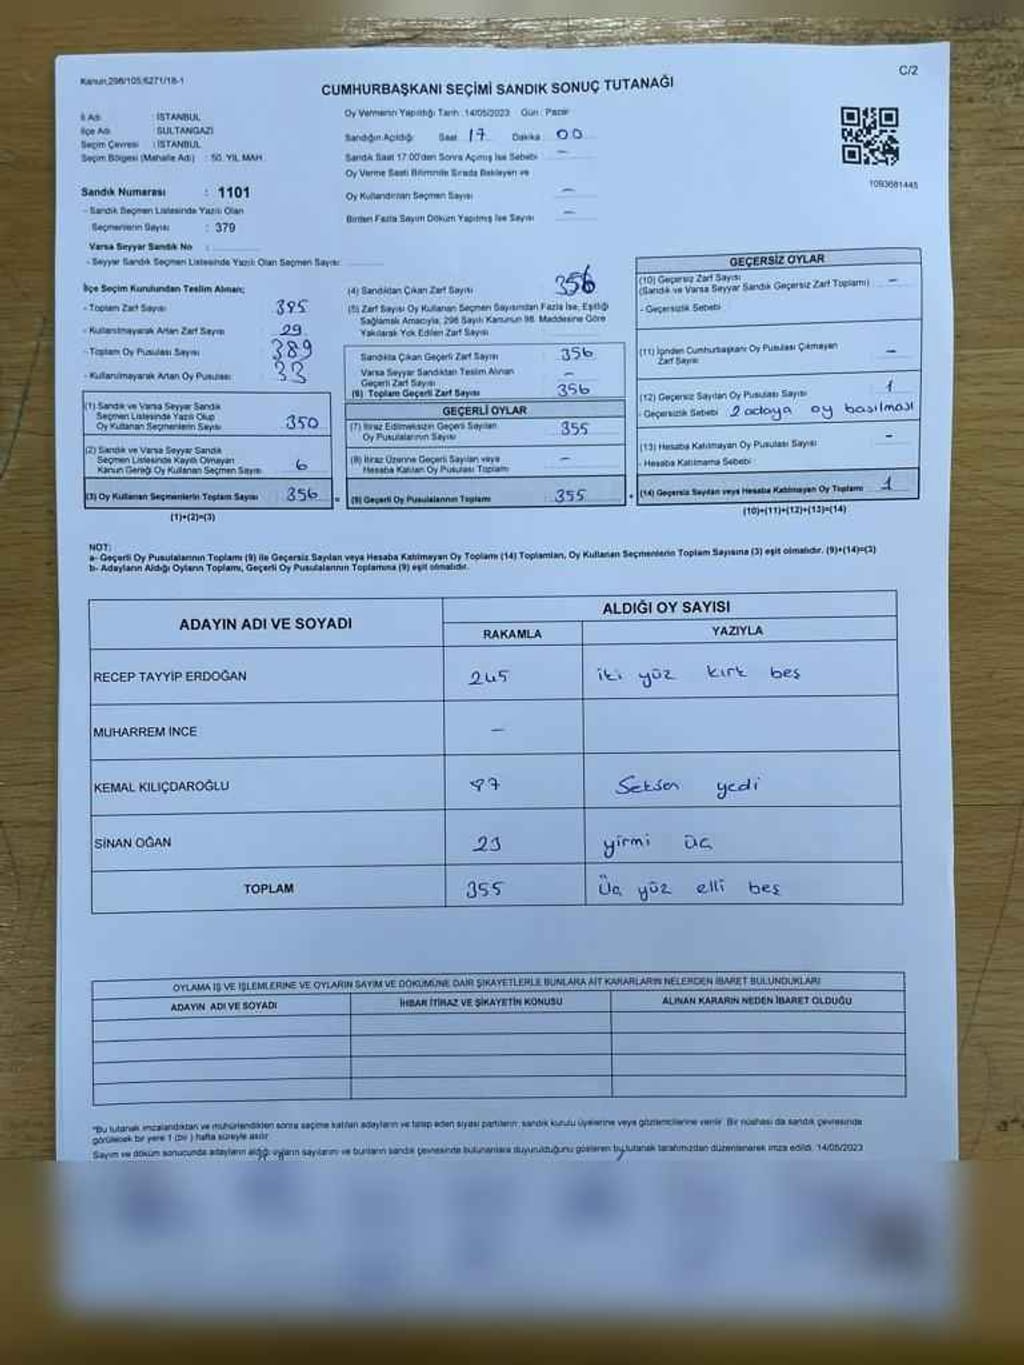 Kanun.298/105;6271/18-1
C/2
CUMHURBAŞKANI SEÇİMİ SANDIK SONUÇ TUTANAĞI
İl Adı : İSTANBUL
İlçe Adı : SULTANGAZİ
Seçim Çevresi : İSTANBUL
Seçim Bölgesi (Mahalle Adı) : 50. YIL MAH.
Sandık Numarası : 1101
- Sandık Seçmen Listesinde Yazılı Olan
Seçmenlerin Sayısı : 379
Varsa Seyyar Sandık No :
- Seyyar Sandık Seçmen Listesinde Yazılı Olan Seçmen Sayısı:
Oy Vermenin Yapıldığı Tarih :14/05/2023 Gün : Pazar
Sandığın Açıldığı: Saat 17 Dakika 00
Sandık Saat 17:00'den Sonra Açmış İse Sebebi -
Oy Verme Saati Bitiminde Sırada Bekleyen ve
Oy Kullandırılan Seçmen Sayısı -
Birden Fazla Sayım Döküm Yapılmış İse Sayısı -
1093681445
İlçe Seçim Kurulundan Teslim Alınan;
- Toplam Zarf Sayısı 385
- Kullanılmayarak Artan Zarf Sayısı 29
- Toplam Oy Pusulası Sayısı 389
- Kullanılmayarak Artan Oy Pusulası: 33
(1) Sandık ve Varsa Seyyar Sandık
Seçmen Listesinde Yazılı Olup
Oy Kullanan Seçmenlerin Sayısı 350
(2) Sandık ve Varsa Seyyar Sandık
Seçmen Listesinde Kayıtlı Olmayan
Kanun Gereği Oy Kullanan Seçmen Sayısı 6
(3) Oy Kullanan Seçmenlerin Toplam Sayısı 356 =
(1)+(2)=(3)
(4) Sandıktan Çıkan Zarf Sayısı 356
(5) Zarf Sayısı Oy Kullanan Seçmen Sayısından Fazla İse, Eşitliği
Sağlamak Amacıyla, 298 Sayılı Kanunun 98. Maddesine Göre
Yakılarak Yok Edilen Zarf Sayısı
Sandıkta Çıkan Geçerli Zarf Sayısı 356
Varsa Seyyar Sandıktan Teslim Alınan
Geçerli Zarf Sayısı -
(6) Toplam Geçerli Zarf Sayısı 356
GEÇERLİ OYLAR
(7) İtiraz Edilmeksizin Geçerli Sayılan
Oy Pusulalarının Sayısı 355
(8) İtiraz Üzerine Geçerli Sayılan veya
Hesaba Katılan Oy Pusulası Toplamı -
(9) Geçerli Oy Pusulalarının Toplamı 355 +
GEÇERSİZ OYLAR
(10) Geçersiz Zarf Sayısı
(Sandık ve Varsa Seyyar Sandık Geçersiz Zarf Toplamı) -
- Geçersizlik Sebebi
(11) İçinden Cumhurbaşkanı Oy Pusulası Çıkmayan
Zarf Sayısı -
(12) Geçersiz Sayılan Oy Pusulası Sayısı 1
- Geçersizlik Sebebi 2 adaya oy basılması
(13) Hesaba Katılmayan Oy Pusulası Sayısı -
- Hesaba Katılmama Sebebi
(14) Geçersiz Sayılan veya Hesaba Katılmayan Oy Toplamı 1
(10)+(11)+(12)+(13)=(14)
NOT:
a- Geçerli Oy Pusulalarının Toplamı (9) ile Geçersiz Sayılan veya Hesaba Katılmayan Oy Toplamı (14) Toplamları, Oy Kullanan Seçmenlerin Toplam Sayısına (3) eşit olmalıdır. (9)+(14)=(3)
b- Adayların Aldığı Oyların Toplamı, Geçerli Oy Pusulalarının Toplamına (9) eşit olmalıdır.
ADAYIN ADI VE SOYADI ALDIĞI OY SAYISI
RAKAMLA YAZIYLA
RECEP TAYYİP ERDOĞAN 245 iki yüz kırk beş
MUHARREM İNCE -
KEMAL KILIÇDAROĞLU 87 Seksen yedi
SİNAN OĞAN 23 yirmi üç
TOPLAM 355 Üç yüz elli beş
OYLAMA İŞ VE İŞLEMLERİNE VE OYLARIN SAYIM VE DÖKÜMÜNE DAİR ŞİKAYETLERLE BUNLARA AİT KARARLARIN NELERDEN İBARET BULUNDUKLARI
ADAYIN ADI VE SOYADI İHBAR İTİRAZ VE ŞİKAYETİN KONUSU ALINAN KARARIN NEDEN İBARET OLDUĞU
"Bu tutanak imzalandıktan ve mühürlendikten sonra seçime katılan adayların ve talep eden siyasi partilerin; sandık kurulu üyelerine veya gözlemcilerine verilir. Bir nüshası da sandık çevresinde
görülecek bir yere 1 (bir ) hafta süreyle asılır.
Sayım ve döküm sonucunda adayların aldığı oyların sayılarını ve bunların sandık çevresinde bulunanlara duyurulduğunu gösteren bu tutanak tarafımızdan düzenlenerek imza edildi. 14/05/2023